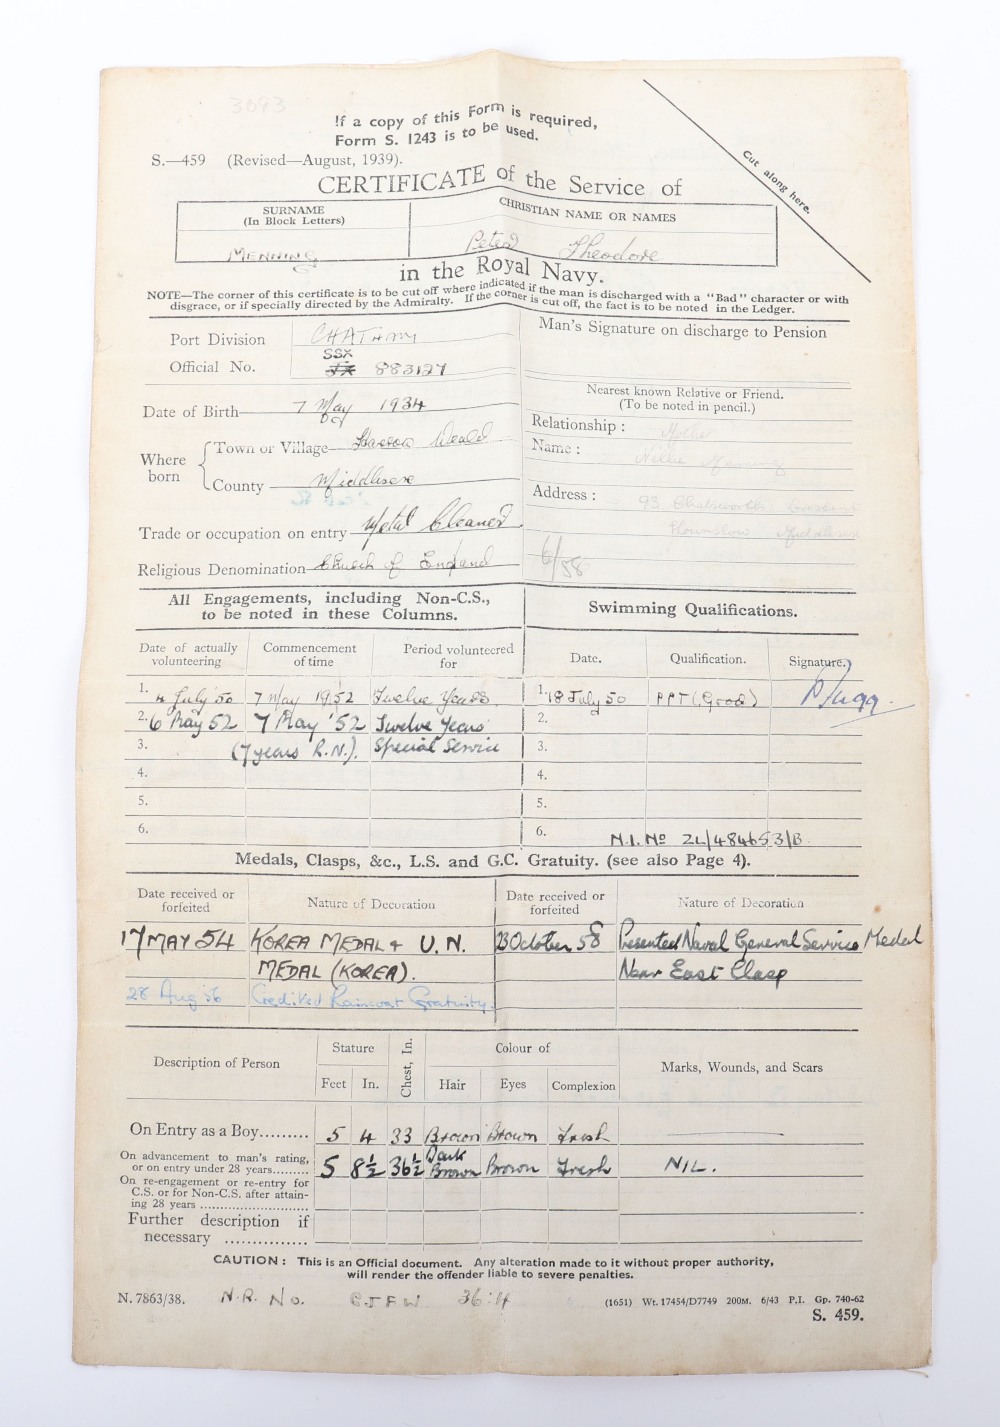 3693
If a copy of this Form is required,
Form S. 1243 is to be used.
S.—459 (Revised—August, 1939).
Cut along here.
CERTIFICATE of the Service of
SURNAME
(In Block Letters)
CHRISTIAN NAME OR NAMES
MENNING
Peter Theodore
in the Royal Navy.
NOTE—The corner of this certificate is to be cut off where indicated if the man is discharged with a "Bad" character or with
disgrace, or if specially directed by the Admiralty. If the corner is cut off, the fact is to be noted in the Ledger.
Port Division CHATHAM
SSX
Official No. JX 883127
Man's Signature on discharge to Pension
Date of Birth 7 May 1934
Where born
Town or Village Harrow Weald
County Middlesex
Trade or occupation on entry Metal Cleaner
Religious Denomination Church of England
Nearest known Relative or Friend.
(To be noted in pencil.)
Relationship : Mother
Name : Nellie Menning
Address : 93 Chatsworth Crescent
Hounslow Middlesex
6/58
All Engagements, including Non-C.S.,
to be noted in these Columns.
Swimming Qualifications.
Date of actually volunteering
Commencement of time
Period volunteered for
Date.
Qualification.
Signature.
1. 4 July '50 7 May 1952 Twelve Years
1. 18 July 50 PPT (Good)
2. 6 May 52 7 May '52 Twelve Years
2.
3. (7 years R.N.). Special Service
3.
4.
4.
5.
5.
6.
6.
N.I. No ZL/484653/B
Medals, Clasps, &c., L.S. and G.C. Gratuity. (see also Page 4).
Date received or forfeited
Nature of Decoration
Date received or forfeited
Nature of Decoration
17 MAY 54 KOREA MEDAL + U.N.
MEDAL (KOREA).
23 October 58 Presented Naval General Service Medal
Near East Clasp
28 Aug 56 Credited Raincoat Gratuity.
Description of Person
Stature
Feet In.
Chest, In.
Colour of
Hair Eyes Complexion
Marks, Wounds, and Scars
On Entry as a Boy......... 5 4 33 Brown Brown Fresh
On advancement to man's rating,
or on entry under 28 years......... 5 8½ 36½ Dark Brown Brown Fresh NIL.
On re-engagement or re-entry for
C.S. or for Non-C.S. after attain-
ing 28 years ...........................
Further description if
necessary ...............
CAUTION : This is an Official document. Any alteration made to it without proper authority,
will render the offender liable to severe penalties.
N. 7863/38. N.R. No.
(1651) Wt. 17454/D7749 200M. 6/43 P.I. Gp. 740-62
S. 459.